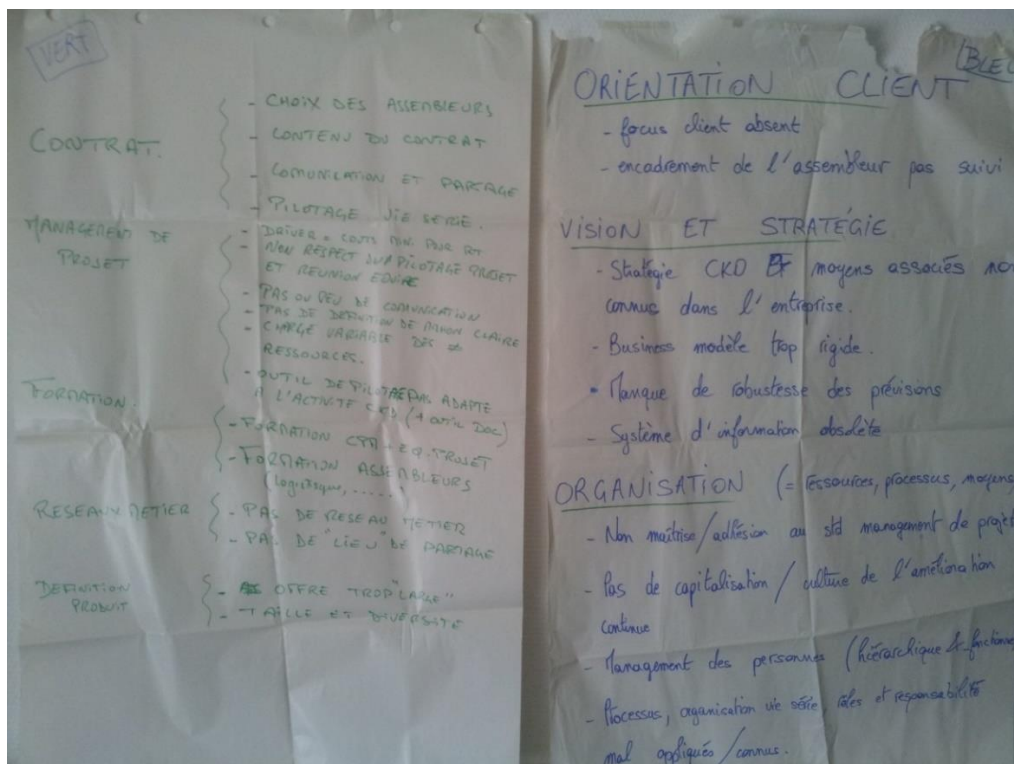 VERT
CONTRAT.
- CHOIX DES ASSEMBLEURS
- CONTENU DU CONTRAT
- COMUNICATION ET PARTAGE
- PILOTAGE VIE SERIE.
MANAGEMENT DE
PROJET
- DRIVER = COUTS POUR
- NON RESPECT DU PILOTAGE PROJET
ET REUNION EQUIPE
- PAS OU PEU DE COMUNICATION
- PAS DE DEFINITION DE CLAIRE
- CHARGE VARIABLE DES
RESSOURCES.
- OUTIL DE PILOTAGE PAS ADAPTE
A L'ACTIVITE CKD (1 OUTIL DOC)
FORMATION.
- FORMATION EQ. PROJET
- FORMATION ASSEMBLEURS
(logistique, .....)
RESEAUX METIER
- PAS DE RESEAU METIER
- PAS DE "LIEU" DE PARTAGE
DEFINITION
PRODUIT
- OFFRE TROP "LARGE"
- TAILLE ET DIVERSITE
BLEU
ORIENTATION CLIENT
- focus client absent
- encadrement de l'assembleur pas suivi
VISION ET STRATÉGIE
- Stratégie CKD ET moyens associés non
connue dans l'entreprise.
- Business modèle trop rigide.
- Manque de robustesse des prévisions
- Système d'information obsolète
ORGANISATION (= ressources, processus, moyens
- Non maîtrise/adhésion au std management de projet
- Pas de capitalisation / culture de l'amélioration
continue
- Management des personnes (hiérarchique & fonctionne
- Processus, organisation vie série, rôles et responsabilité
mal appliqués/connus.